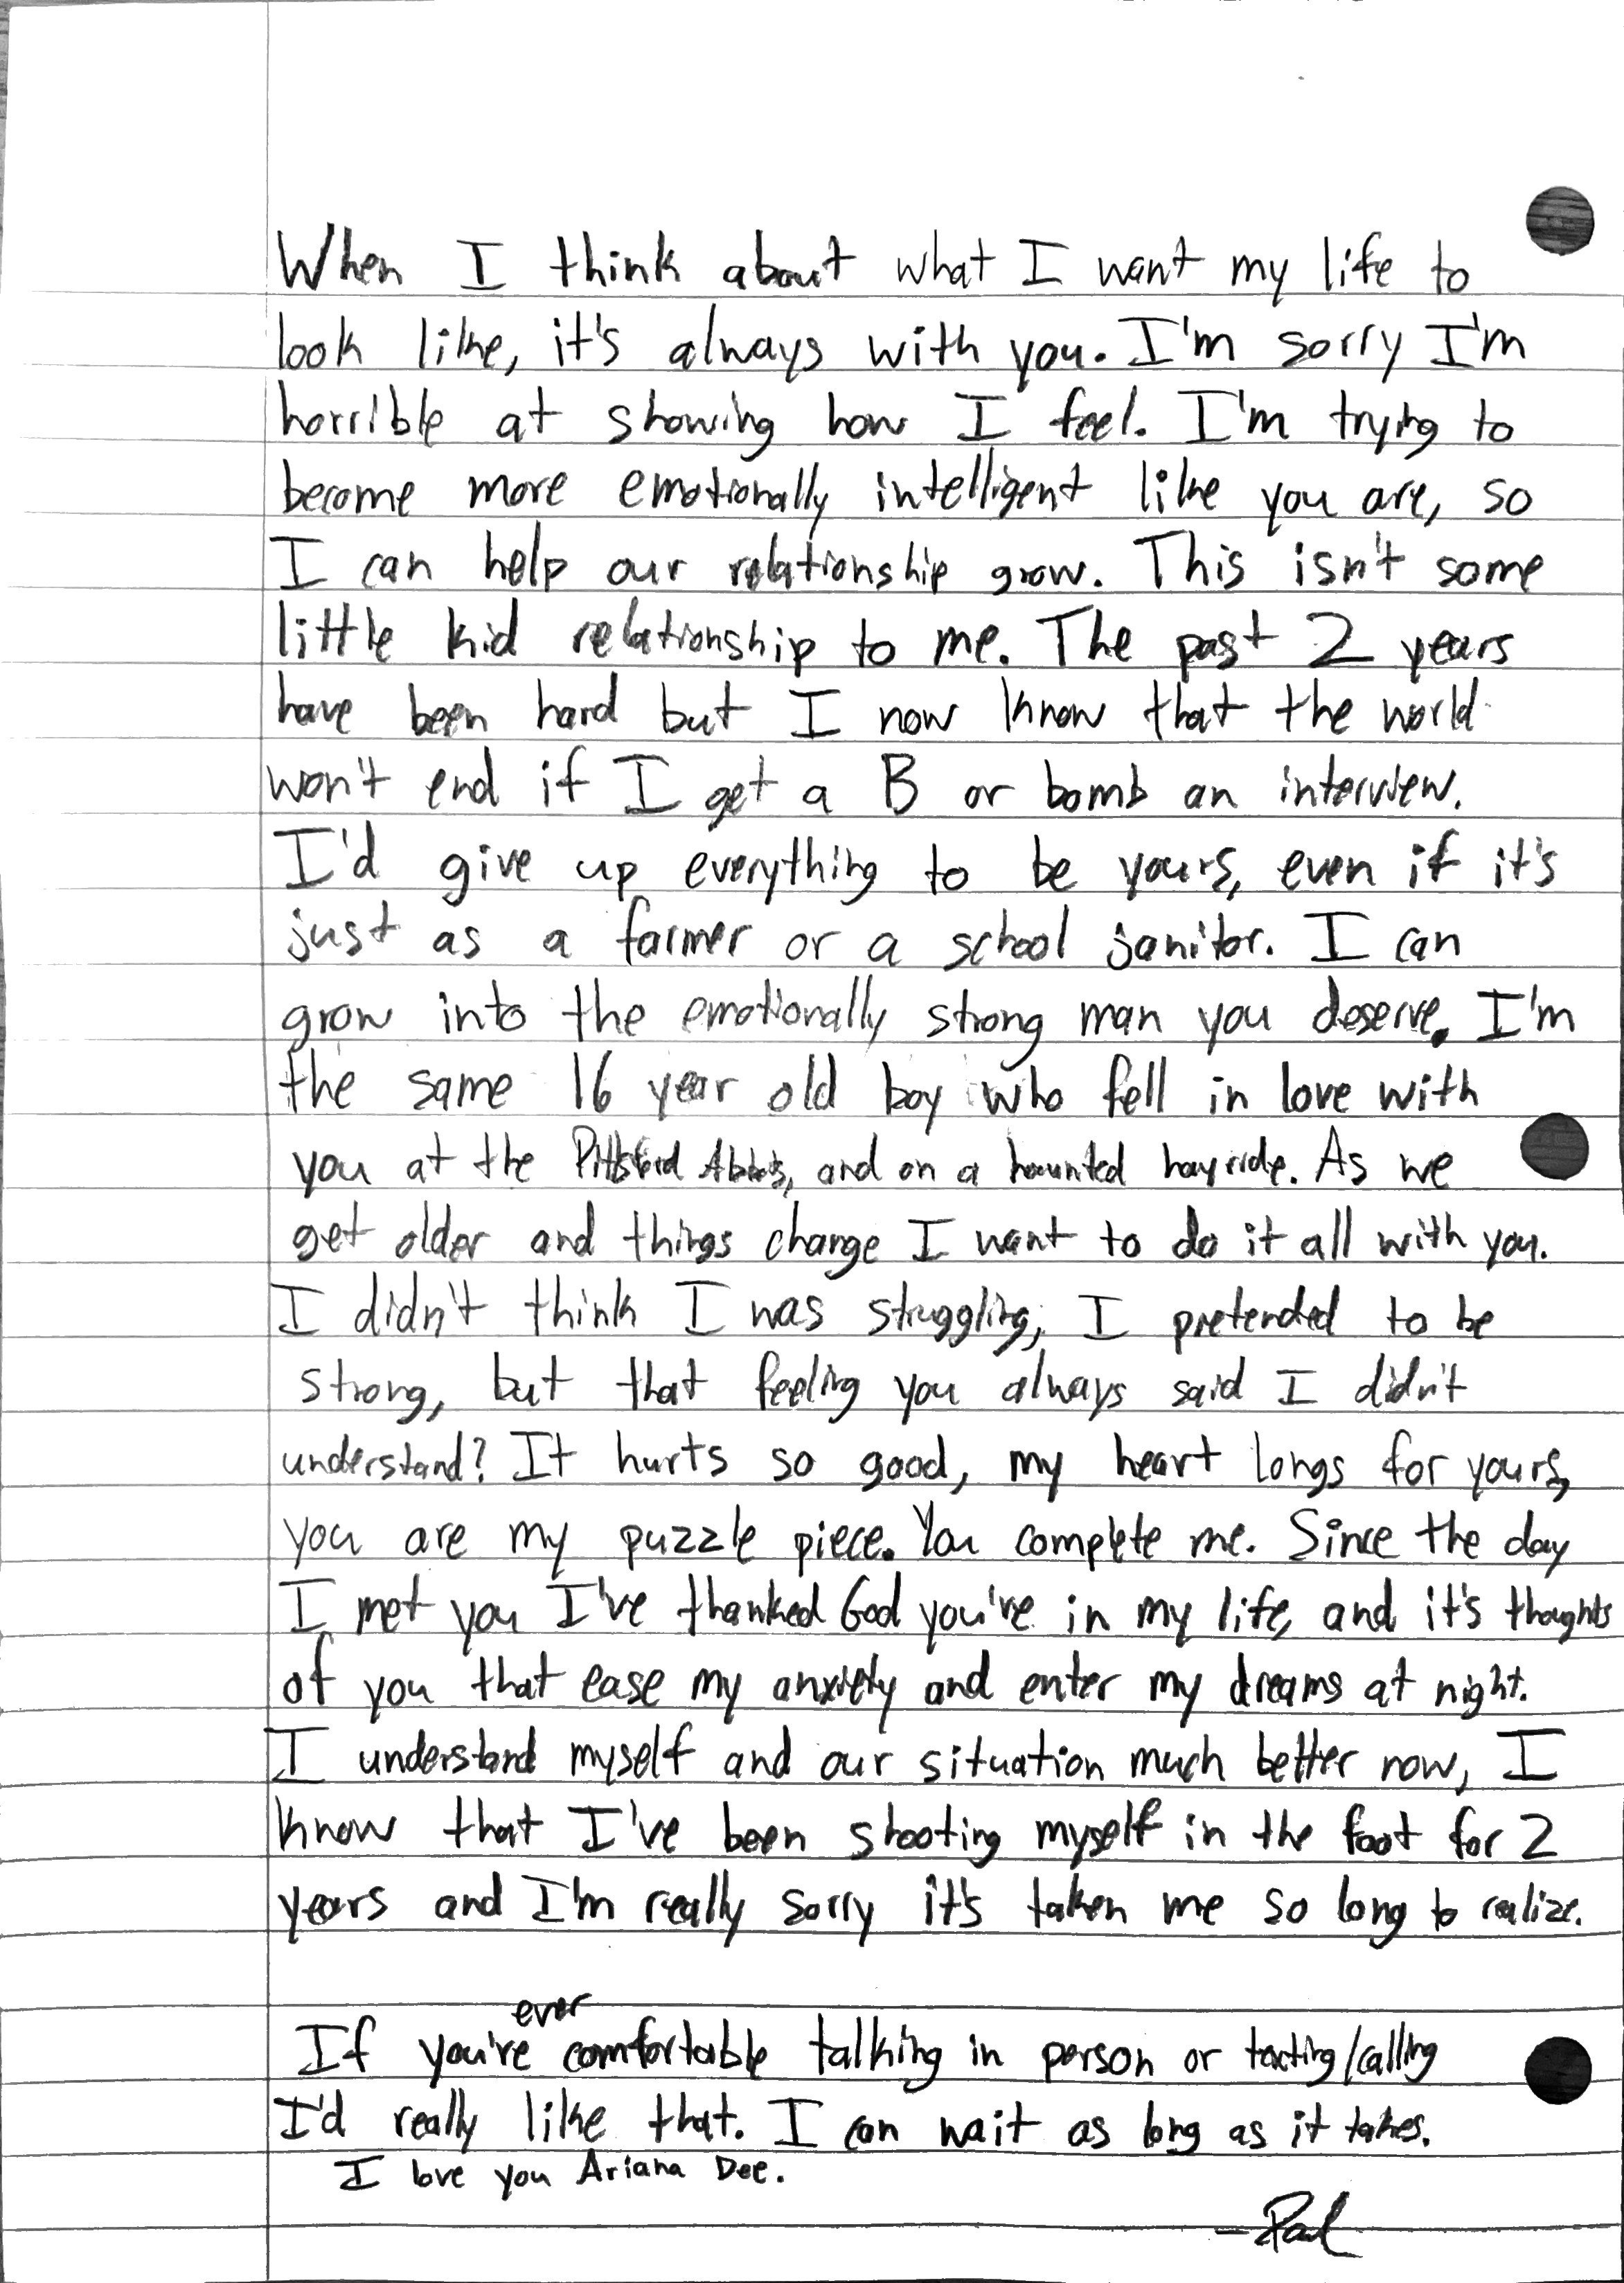 When I think about what I want my life to
look like, it's always with you. I'm sorry I'm
horrible at showing how I feel. I'm trying to
become more emotionally intelligent like you are, so
I can help our relationship grow. This isn't some
little kid relationship to me. The past 2 years
have been hard but I now know that the world
won't end if I get a B or bomb an interview.
I'd give up everything to be yours, even if it's
just as a farmer or a school janitor. I can
grow into the emotionally strong man you deserve. I'm
the same 16 year old boy who fell in love with
you at the Pittsford Abbots, and on a haunted hayride. As we
get older and things change I want to do it all with you.
I didn't think I was struggling, I pretended to be
strong, but that feeling you always said I didn't
understand? It hurts so good, my heart longs for yours,
you are my puzzle piece. You complete me. Since the day
I met you I've thanked God you're in my life, and it's thoughts
of you that ease my anxiety and enter my dreams at night.
I understand myself and our situation much better now, I
know that I've been shooting myself in the foot for 2
years and I'm really sorry it's taken me so long to realize.
If you're ever comfortable talking in person or texting/calling
I'd really like that. I can wait as long as it takes.
I love you Ariana Dee.
—Paul